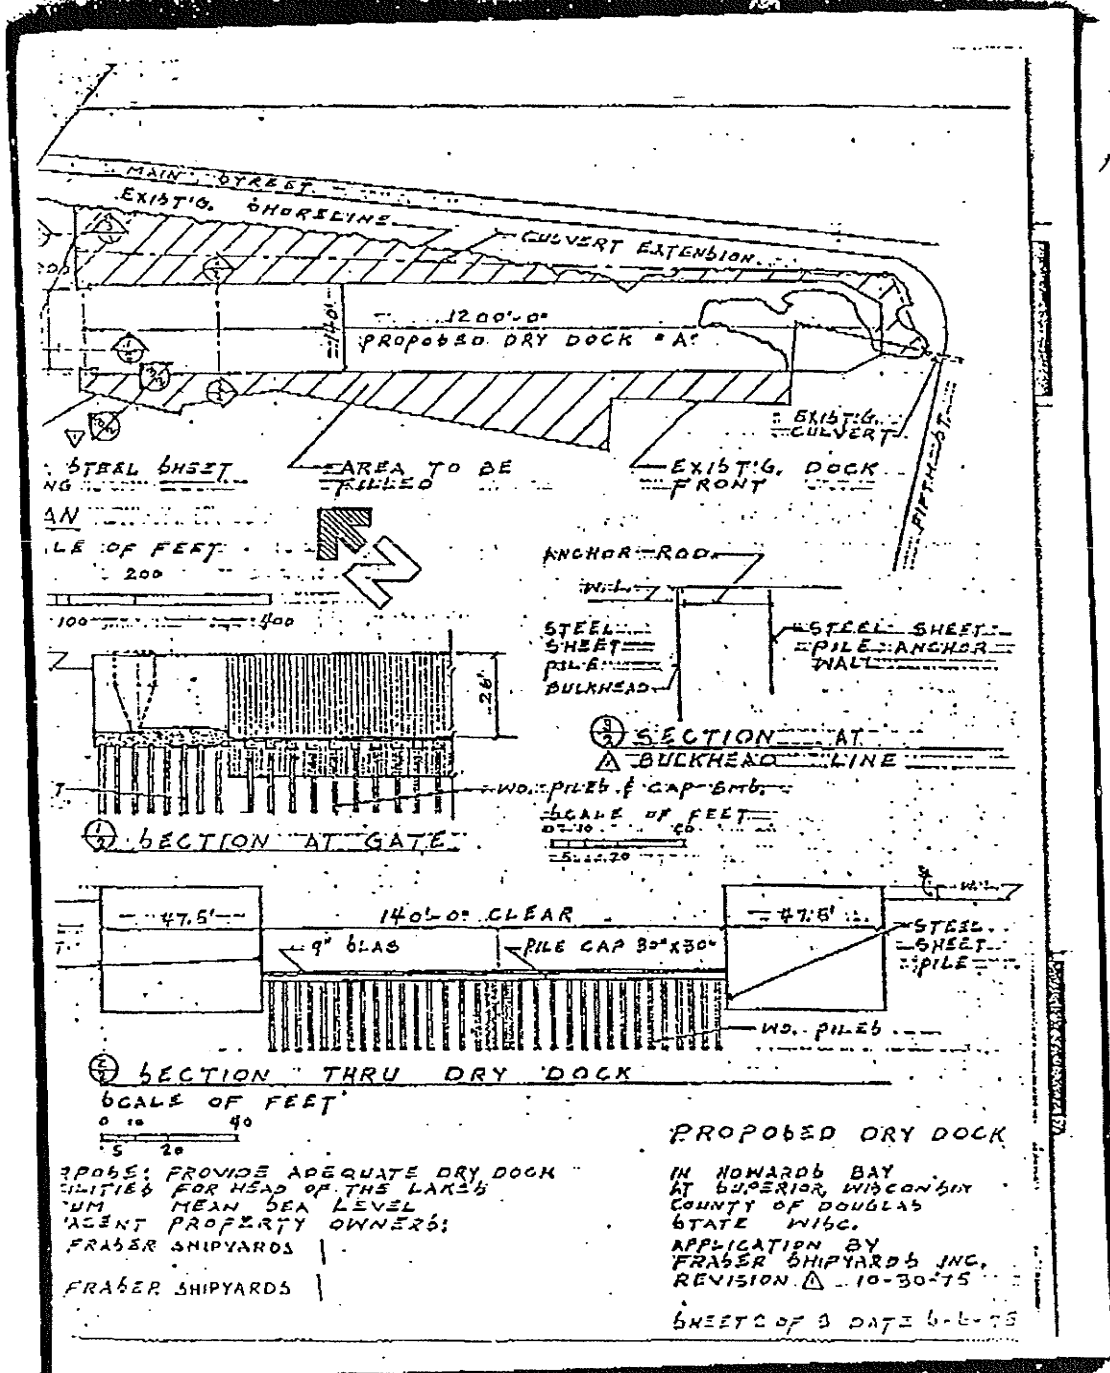 MAIN STREET
EXIST'G. SHORELINE
CULVERT EXTENSION
1200'-0"
140'
PROPOSED DRY DOCK "A"
EXIST'G.
CULVERT
FIFTH ST.
STEEL SHEET
NG
AREA TO BE
FILLED
EXIST'G. DOCK
FRONT
AN
LE OF FEET
200
100 400
ANCHOR ROD
W.L.
STEEL
SHEET
PILE
BULKHEAD
STEEL SHEET
PILE ANCHOR
WALL
26'
3/2 SECTION AT
1 BULKHEAD LINE
T
WD. PILES & CAP
SCALE OF FEET
0 10
5 20
1/2 SECTION AT GATE
47.5' 140'-0" CLEAR 47.5'
W.L.
9" SLAB
PILE CAP 30"X30"
STEEL
SHEET
PILE
T.
WD. PILES
2/2 SECTION THRU DRY DOCK
SCALE OF FEET
0 10 40
5 20
RPOSE: PROVIDE ADEQUATE DRY DOCK
CILITIES FOR HEAD OF THE LAKES
TUM MEAN SEA LEVEL
JACENT PROPERTY OWNERS:
FRASER SHIPYARDS
FRASER SHIPYARDS
PROPOSED DRY DOCK
IN HOWARDS BAY
AT SUPERIOR, WISCONSIN
COUNTY OF DOUGLAS
STATE WISC.
APPLICATION BY
FRASER SHIPYARDS INC.
REVISION 1 10-30-75
SHEET 2 OF 3 DATE 6-6-75